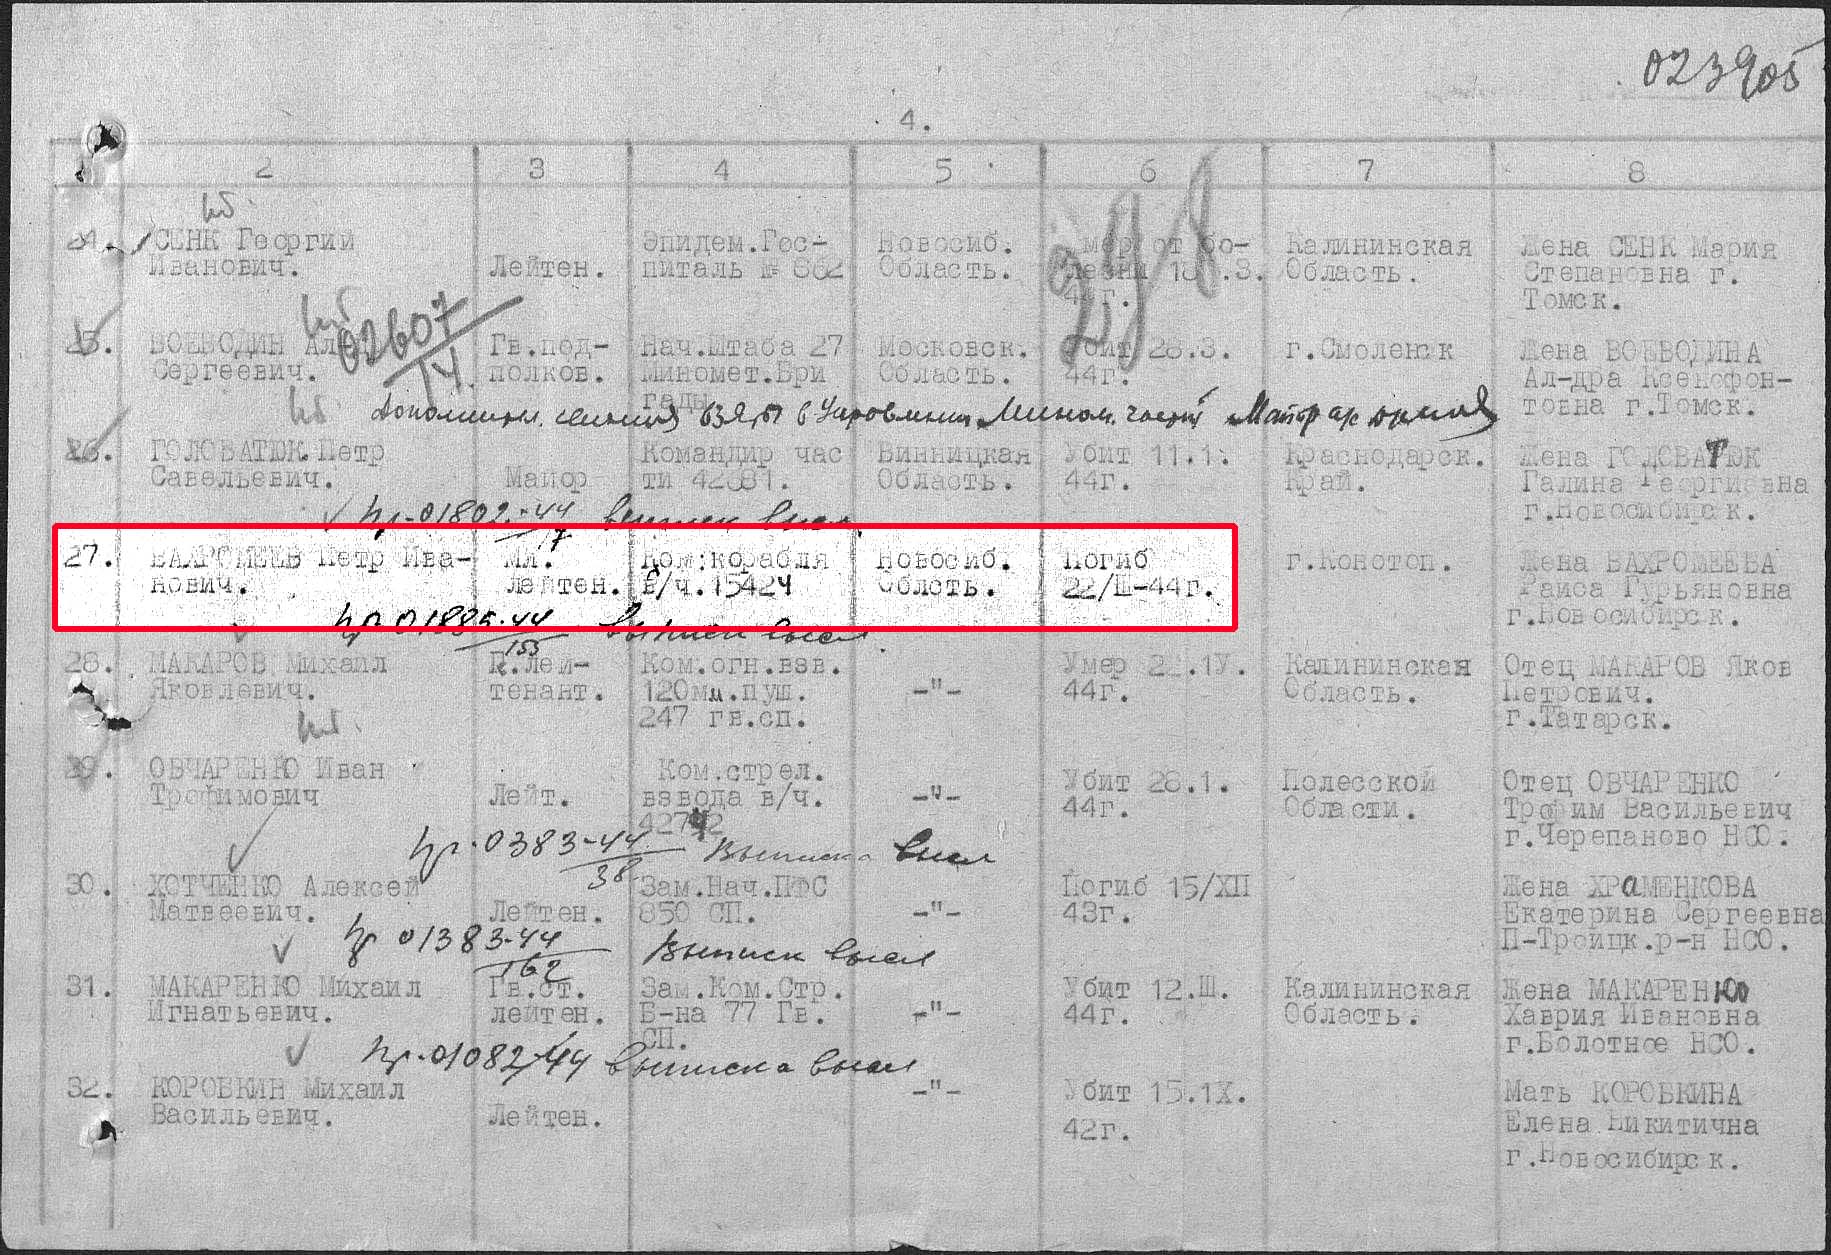 023905
4.
2 3 4 5 6 7 8
кб.
24. СЕНК Георгий Эпидем.Гос- Новосиб. мер от бо- Калининская Жена СЕНК Мария
Иванович. Лейтен. питаль № 882 Область. лезни 18 .3. Область. Степановна г.
44г. Томск.
298
кб
02607
14
25. ВОЕВОДИН Ал Гв.под- Нач.Штаба 27 Московск. Убит 28.3. г.Смоленск Жена ВОЕВОДИНА
Сергеевич. полков. Миномет.Бри Область. 44г. Ал-дра Ксенофон-
гады товна г.Томск.
кб. взяты в Управлении Мином. частей Майор
26. ГОЛОВАТЮК Петр Командир час Винницкая Убит 11.1. Краснодарск. Жена ГОЛОВАТЮК
Савельевич. Майор ти 42681. Область. 44г. Край. Галина Георгиевна
г.Новосибирск.
пр-01802-44
7
27. ВАХРОМЕЕВ Петр Ива- Мл. Ком.корабля Новосиб. Погиб г.Конотоп. Жена ВАХРОМЕЕВА
нович. Лейтен. в/ч.15424 Облсть. 22/Ш-44г. Раиса Гурьяновна
г.Новосибирск.
пр 01885-44 выписки высл
153
28. МАКАРОВ Михаил Г.Лей- Ком.огн.взв. Умер 22.1У. Калининская Отец МАКАРОВ Яков
Яковлевич. тенант. 120мм.пуш. -"- 44г. Область. Петрович.
247 гв.сп. г.Татарск.
кб.
29. ОВЧАРЕНКО Иван Ком.стрел. Убит 28.1. Полесской Отец ОВЧАРЕНКО
Трофимович Лейт. взвода в/ч. -"- 44г. Области. Трофим Васильевич
42742 г.Черепаново НСО.
пр-0383-44 Выписка высл
38
30. ХОТЧЕНКО Алексей Зам.Нач.ПФС Погиб 15/ХП Жена ХРАМЕНКОВА
Матвеевич. Лейтен. 850 СП. -"- 43г. Екатерина Сергеевна
П-Троицк.р-н НСО.
пр 01383-44 Выписки высл
162
31. МАКАРЕНКО Михаил Гв.ст. Зам.Ком.Стр. Убит 12.Ш. Калининская Жена МАКАРЕНКО
Игнатьевич. лейтен. Б-на 77 Гв. -"- 44г. Область. Хаврия Ивановна
СП. г.Болотное НСО.
пр-01082-44 выписка высл
32. КОРОБКИН Михаил -"- Убит 15.1Х. Мать КОРОБКИНА
Васильевич. Лейтен. 42г. Елена Никитична
г.Новосибирск.